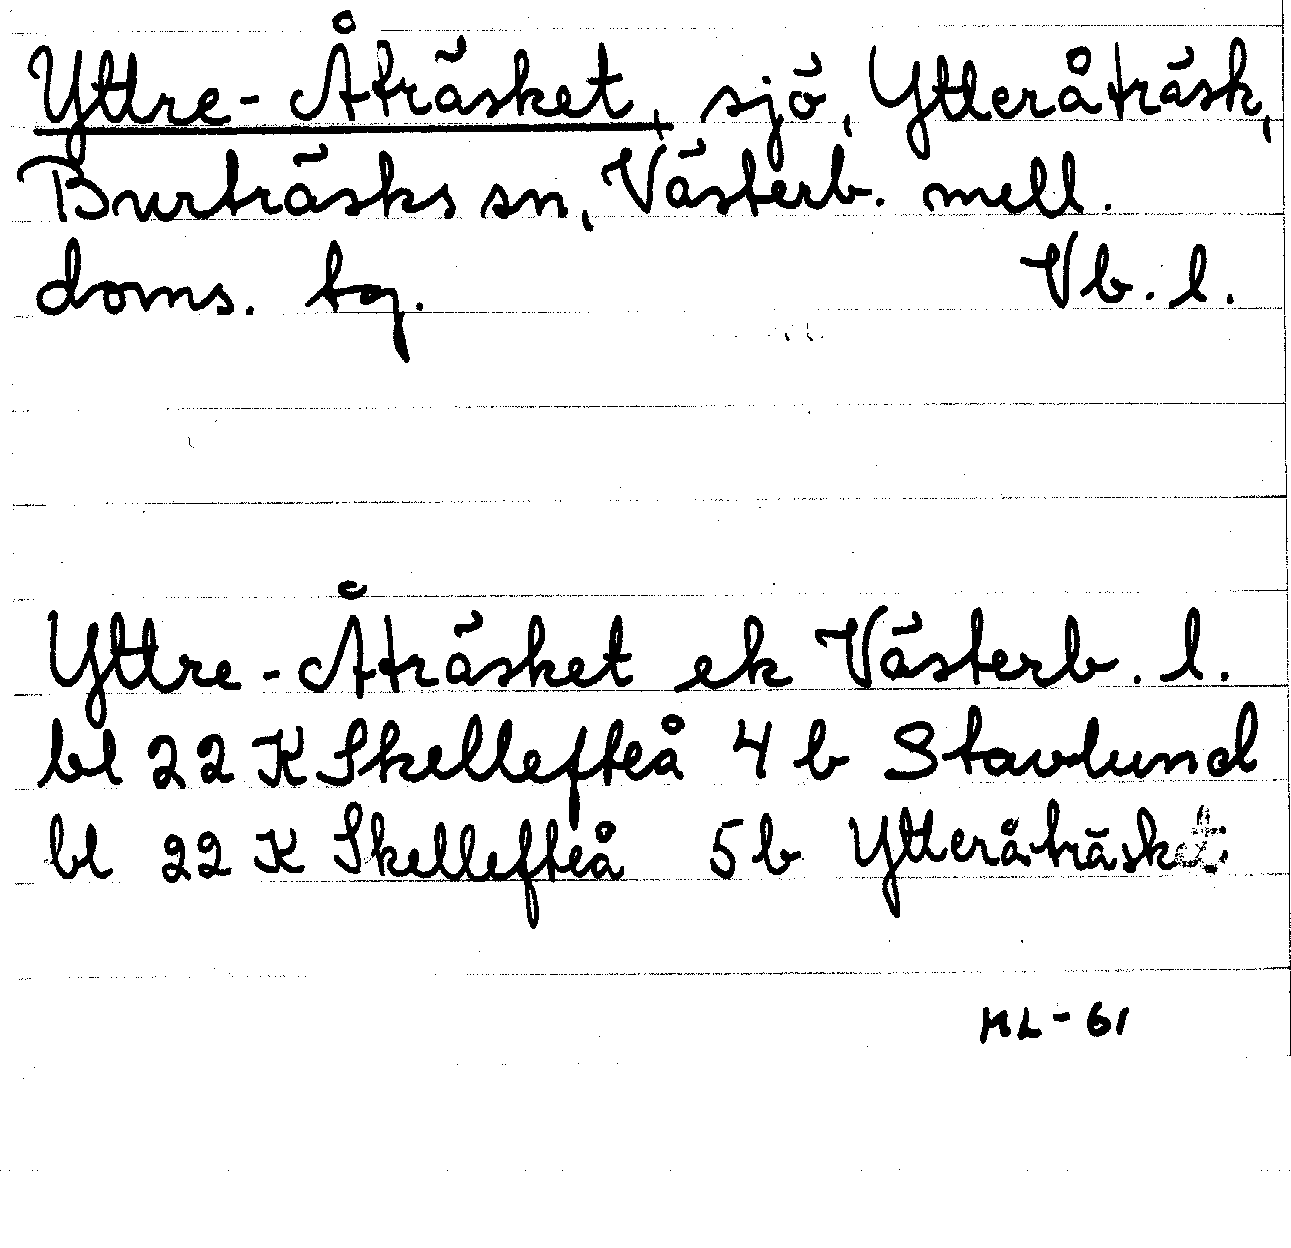 Yttre-Åträsket, sjö, Ytteråträsk,
Burträsks sn, Västerb. mell.
doms. tg. Vb. l.
Yttre-Åträsket ek Västerb. l.
bl 22 K Skellefteå 4 b Stavlund
bl 22 K Skellefteå 5 b Ytteråträsk
ML-61